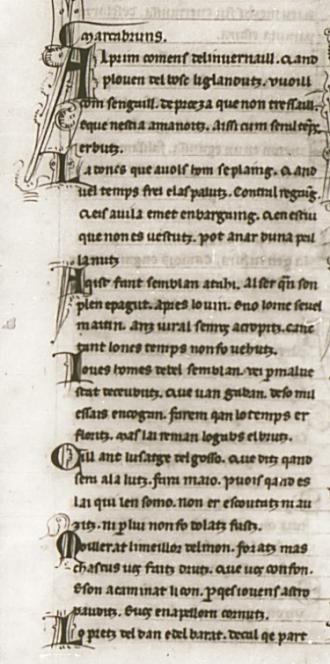 marcabruns.
Al prim comens delinuernaill. & and
plouen del bosc li glandutz. vuoill
com senguill. de proeza que non tressaill.
eque nestia amanoitz. Aissi cum
erbutz.
La doncs que auols hom se plaing. & and
uei temps frei elas palutz. Contral
& eis auila emet enbarguing. & en estiu
que non es uestutz. pot anar duna pel
la nutz
Aqist fant semblan atahi. Al ser qan son
plen epagut. apres lo uin. eno lor
maitin. Ans iural acropitz. canc
tant loncs temps non fo uengutz.
Ioues homes de bel semblan. vei per malue
stat deceubutz. Que uan gaban. deso mil
essais encogan. farem qan lo temps er
floritz. mas lai reman lo gabs el brutz.
Cill ant lusatge del gosso. Que ditz qand
sera ala lutz. fara maio. puois qand es
lai qui len somo. non er escoutatz ni au
zitz. ni per lui non fo dolatz fustz.
Moillerat li meillor del mon. foratz mas
chascus uos faitz drutz. Que uos confon.
Eson acaminat li con. per qes iouens
bauditz. Euos en apellom cornutz.
Lo pretz del dan edel barat. de cal qe part